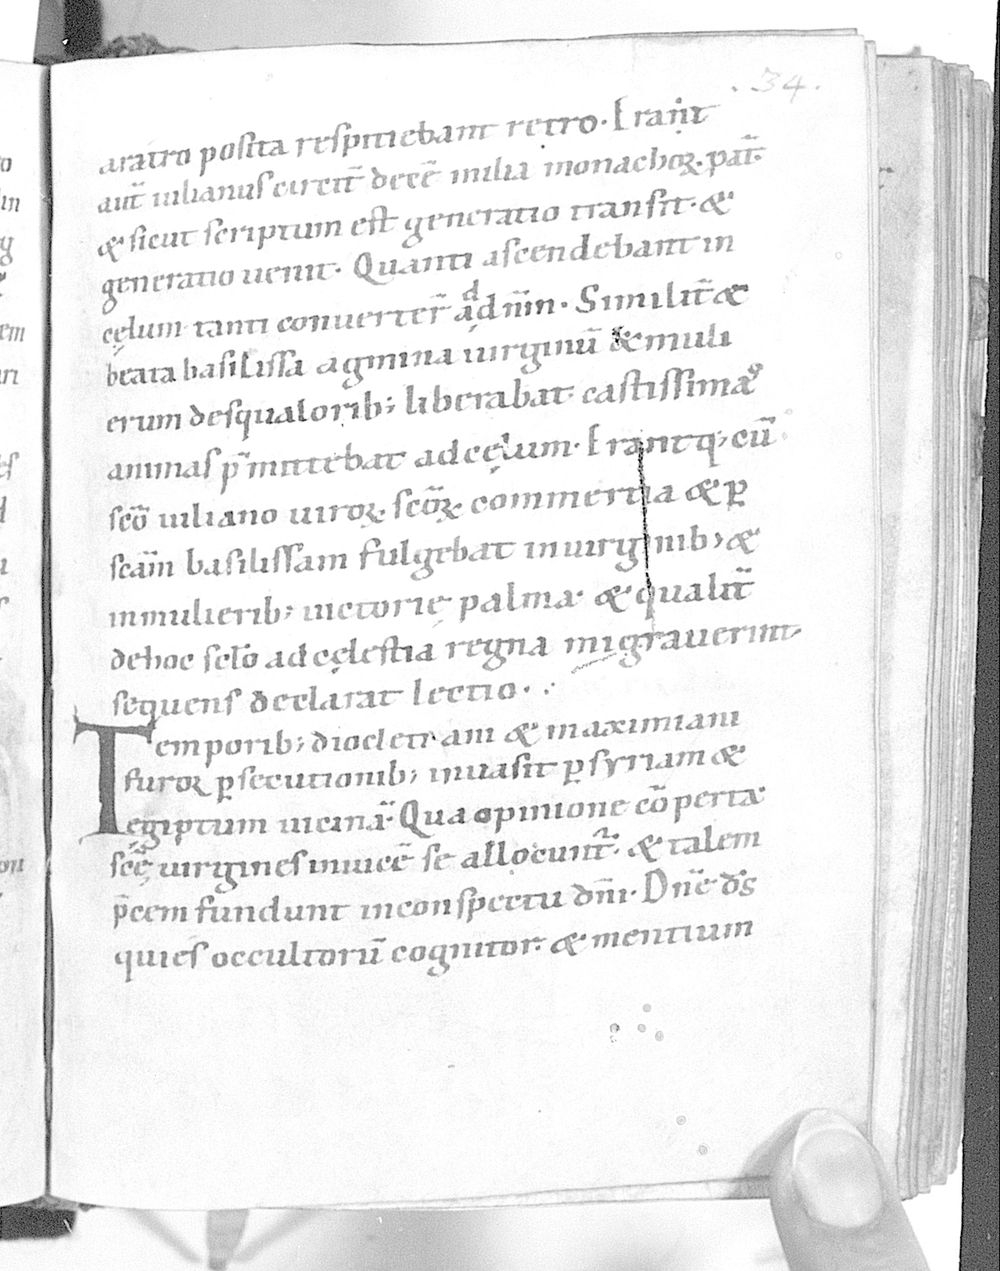 .34.
aratro posita respitiebant retro. Erant
aut̄ iulianus circit̄ decē milia monachoꝝ. pat̄.
& sicut scriptum est generatio transit. &
generatio uenit. Quanti ascendebant in
cęlum tanti conuerter̄ ad dn̄m. Similit̄ &
beata basilissa agmina uirginū & muli
erum desqualorib; liberabat. castissimas
animas p̄mittebat ad cęlum. Erantq; cū
sc̄o iuliano uiroꝝ. sc̄oꝝ commertia & ꝑ
sc̄am basilissam fulgebat inuirginib; &
inmulierib; uictorię palma. & qualit̄
dehoc sc̄lo ad cęlestia regna migrauerint.
sequens declarat lectio.
Temporib; diocletiani & maximiani
furoꝝ ꝑsecutionib; inuasit ꝑ syriam &
egiptum uicina. Qua opinione cōperta
sc̄ę uirgines inuicē se allocunt̄. & talem
p̄cem fundunt inconspectu dn̄i. Dn̄e d̄s
quies occultorū cognitor. & mentium